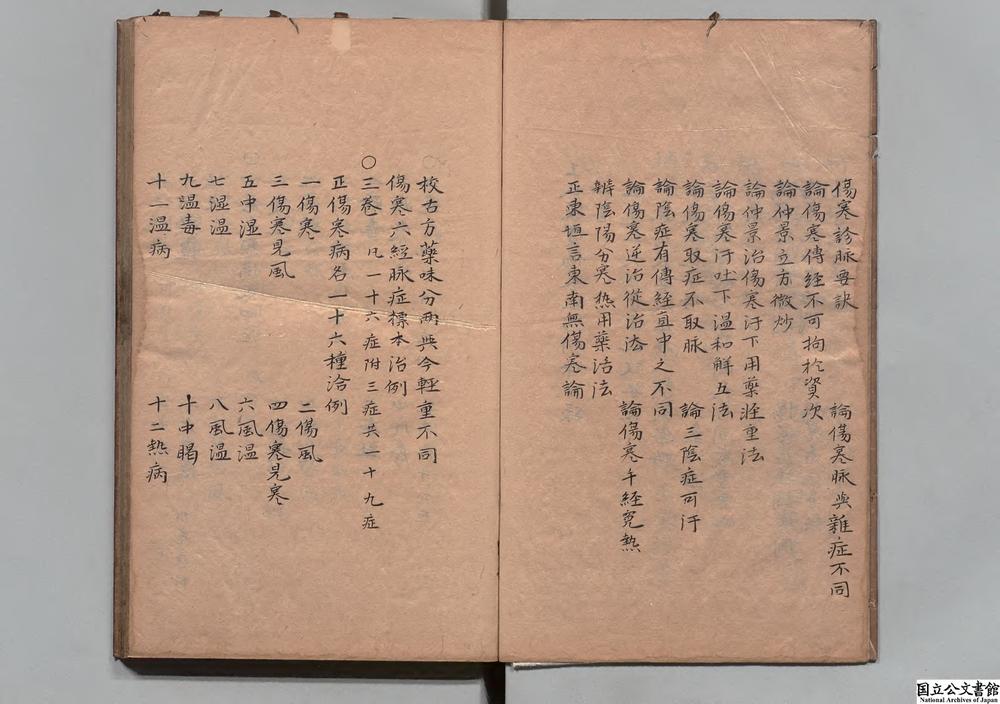 傷寒診脉要訣　論傷寒脉與雜症不同
論傷寒傳経不可拘於資次
論仲景立方微炒
論仲景治傷寒汗下用藥輕重法
論傷寒汗吐下温和解五法
論傷寒取症不取脉　論三陰症可汗
論陰症有傳経直中之不同
論傷寒逆治從治法　論傷寒千経究熱
辨陰陽分寒热用藥活法
正東垣言東南無傷寒論
〇校古方藥味分两與今輕重不同
傷寒六經脉症標本治例
〇三卷　凡一十六症附三症共一十九症
正傷寒病名一十六種治例
一傷寒　二傷風
三傷寒見風　四傷風見寒
五中湿　六風温
七湿温　八風温
九温毒　十中暍
十一温病　十二热病
国立公文書館
National Archives of Japan